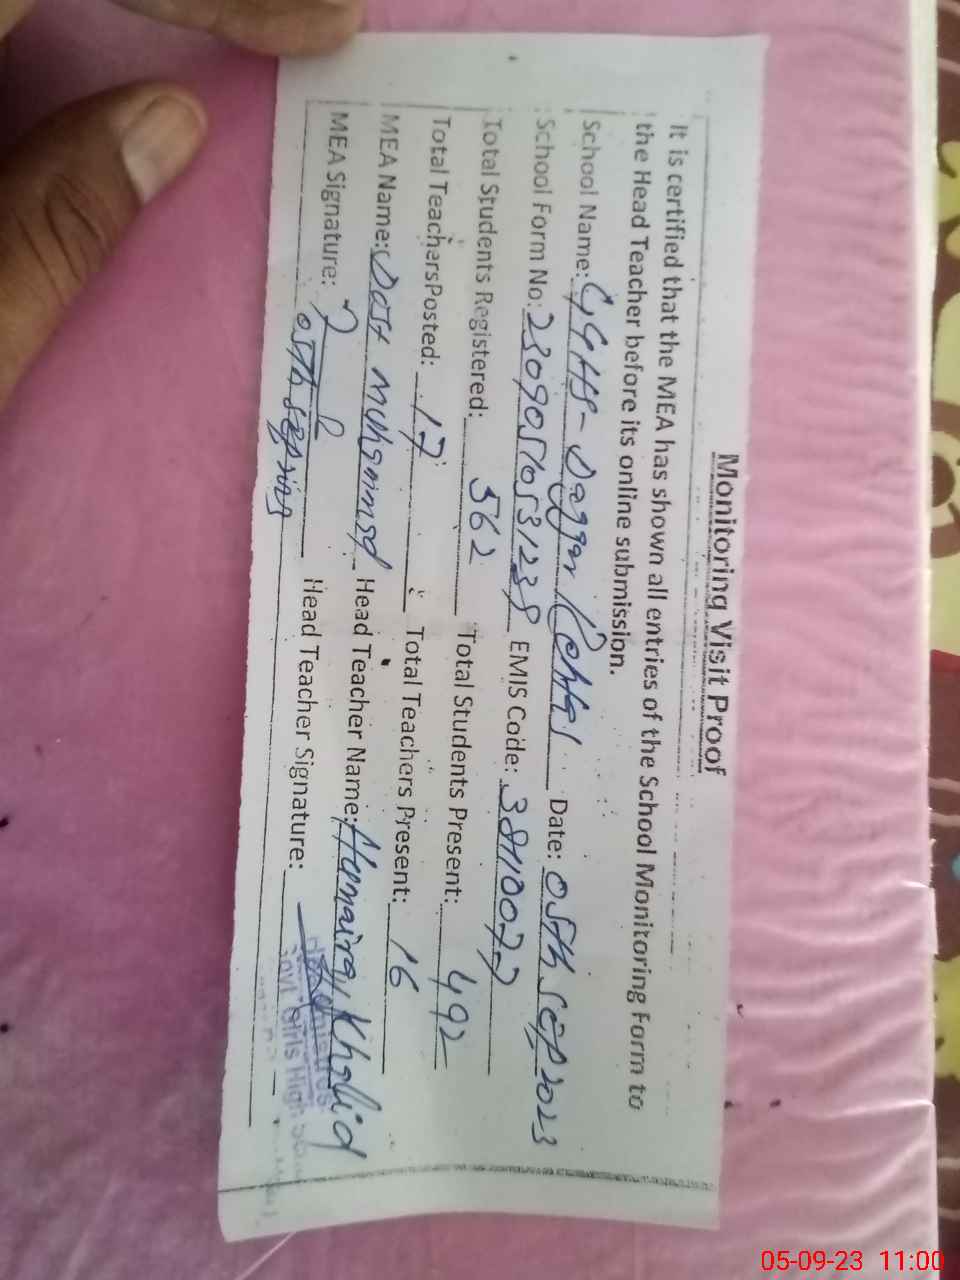 Monitoring Visit Proof
It is certified that the MEA has shown all entries of the School Monitoring Form to
the Head Teacher before its online submission.
School Name: GGHS- Daggar Date: 05th Sep 2023
School Form No: EMIS Code:
Total Students Registered: 562 Total Students Present: 492
Total TeachersPosted: 17 Total Teachers Present: 16
MEA Name: Head Teacher Name: Humaira Khalid
MEA Signature: Head Teacher Signature:
05th Sep
Govt Girls High
05-09-23 11:00